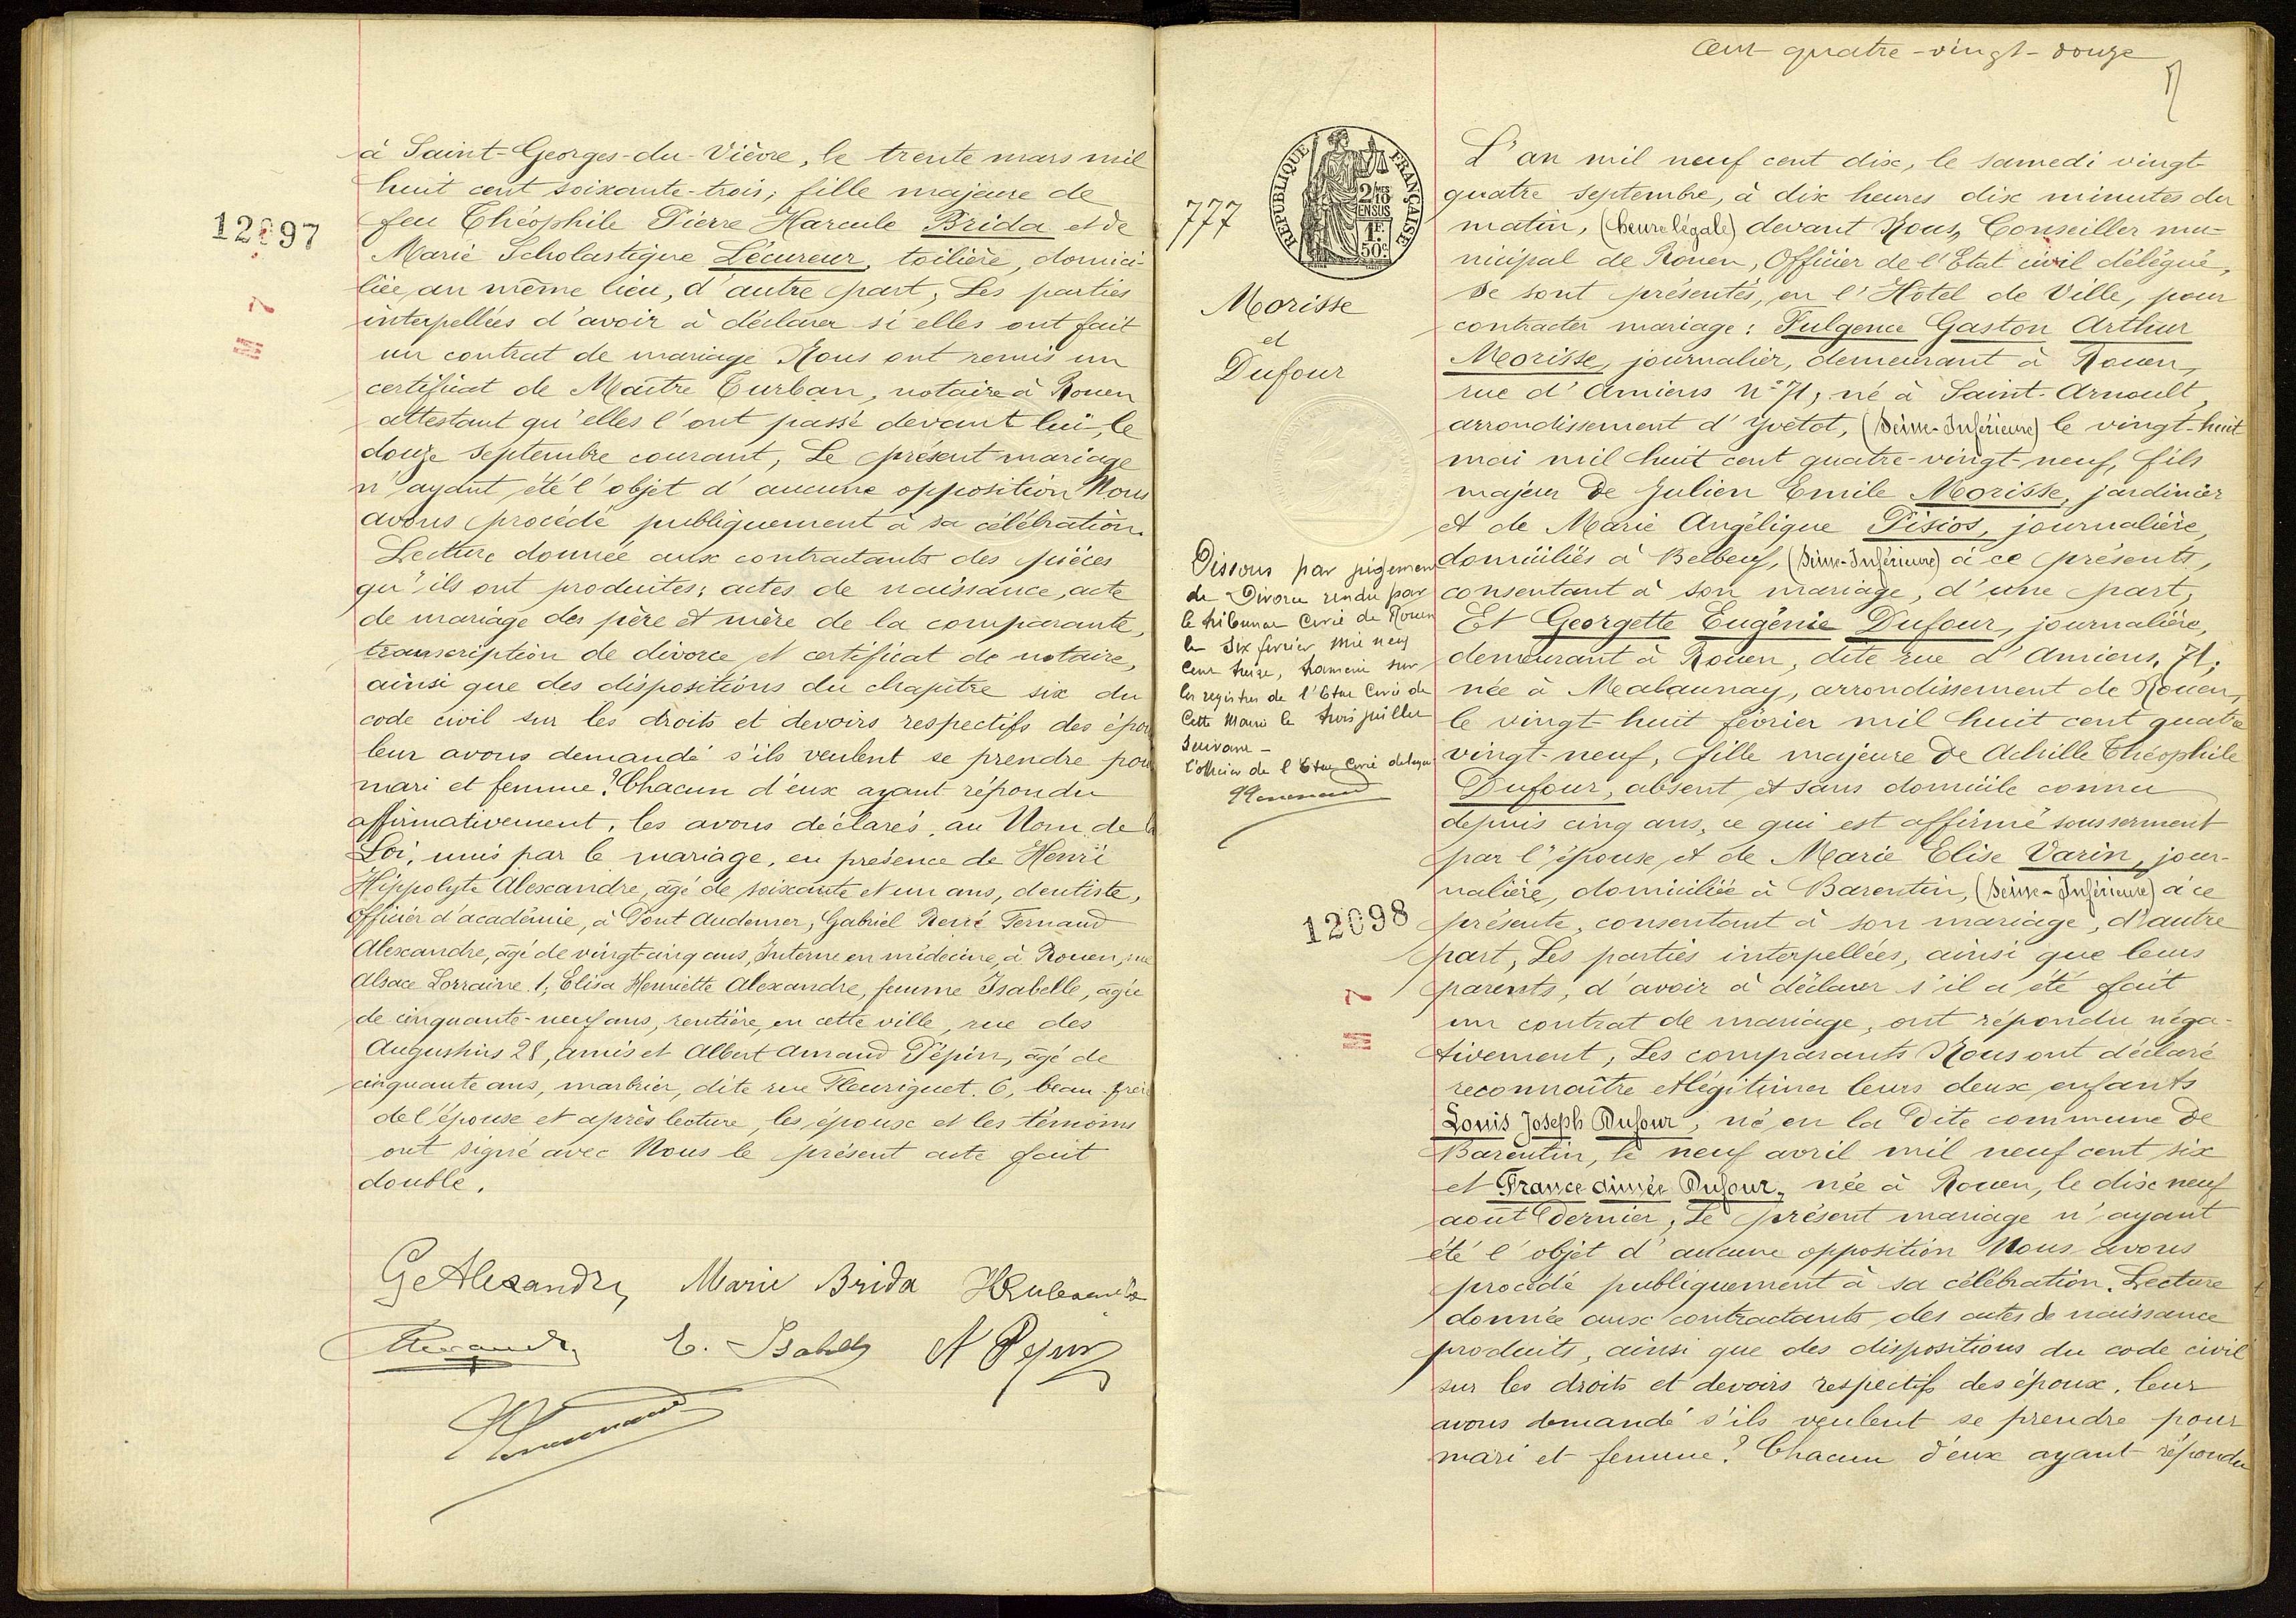 12097
M 7
à Saint-Georges-du-Vièvre, le trente mars mil
huit cent soixante-trois; fille majeure de
feu Théophile Pierre Harcule Brida et de
Marie Scholastique Lécureur, toilière, domici-
liée au même lieu, d'autre part; Les parties
interpellées d'avoir à déclarer si elles ont fait
un contrat de mariage Nous ont remis un
certificat de Maître Turban, notaire à Rouen
attestant qu'elles l'ont passé devant lui, le
douze septembre courant; Le présent mariage
n'ayant été l'objet d'aucune opposition Nous
avons procédé publiquement à sa célébration.
Lecture donnée aux contractants des pièces
qu'ils ont produites; actes de naissance, acte
de mariage des père et mère de la comparante,
transcription de divorce et certificat de notaire,
ainsi que des dispositions du chapitre six du
code civil sur les droits et devoirs respectifs des épou
leur avons demandé s'ils veulent se prendre pou
mari et femme? Chacun d'eux ayant répondu
affirmativement, les avons déclarés, au Nom de la
Loi, unis par le mariage, en présence de Henri
Hippolyte Alexandre, âgé de soixante et un ans, dentiste,
officier d'académie, à Pont Audemer, Gabriel René Fernand
Alexandre, âgé de vingt-cinq ans, Interne en médecine, à Rouen, rue
Alsace Lorraine 1; Elisa Henriette Alexandre, femme Isabelle, âgée
de cinquante-neuf ans, rentière, en cette ville, rue des
Augustins 28, amis et Albert Amand Pépin, âgé de
cinquante ans, marbrier, dite rue Fleuriguet 6, beau-frère
de l'épouse et après lecture, les époux et les témoins
ont signé avec Nous le présent acte fait
double.
G. Alexandre Marie Brida
Alexandre E. Isabelle A Pepin
cent quatre-vingt-douze
777
RÉPUBLIQUE FRANÇAISE
2/10 EN SUS
1F. 50c
Morisse
et
Dufour
Dissous par jugement
de Divorce rendu par
le tribunal Civil de Rouen
le Six février Mil neuf
Cent treize, transcrit sur
les registres de l'Etat Civil de
Cette Mairie le trois juillet
Suivant -
L'officier de l'Etat Civil délégué
12098
M 7
L'an mil neuf cent dix, le samedi vingt-
quatre septembre, à dix heures dix minutes du
matin, (heure légale) devant Nous, Conseiller mu-
nicipal de Rouen, Officier de l'Etat civil délégué,
se sont présentés, en l'Hôtel de Ville, pour
contracter mariage: Fulgence Gaston Arthur
Morisse, journalier, demeurant à Rouen,
rue d'Amiens N° 71, né à Saint-Arnoult,
arrondissement d'Yvetot, (Seine-Inférieure) le vingt-huit
mai mil huit cent quatre-vingt-neuf, fils
majeur de Julien Emile Morisse, jardinier
et de Marie Angélique Pisios, journalière,
domiciliés à Belbeuf, (Seine-Inférieure) à ce présents,
consentant à son mariage, d'une part;
Et Georgette Eugénie Dufour, journalière,
demeurant à Rouen, dite rue d'Amiens, 71;
née à Malaunay, arrondissement de Rouen,
le vingt-huit février mil huit cent quatre
vingt-neuf, fille majeure de Achille Théophile
Dufour, absent et sans domicile connu
depuis cinq ans, ce qui est affirmé sous serment
par l'épouse, et de Marie Elise Varin, jour-
nalière, domiciliée à Barentin, (Seine-Inférieure) à ce
présente, consentant à son mariage, d'autre
part; Les parties interpellées, ainsi que leurs
parents, d'avoir à déclarer s'il a été fait
un contrat de mariage, ont répondu néga-
tivement; Les comparants Nous ont déclaré
reconnaître et légitimer leurs deux enfants
Louis Joseph Dufour, né en la dite commune de
Barentin, le neuf avril mil neuf cent six
et France Aimée Dufour, née à Rouen, le dix neuf
août dernier; Le présent mariage n'ayant
été l'objet d'aucune opposition Nous avons
procédé publiquement à sa célébration. Lecture
donnée aux contractants des actes de naissance
produits, ainsi que des dispositions du code civil
sur les droits et devoirs respectifs des époux, leur
avons demandé s'ils veulent se prendre pour
mari et femme? Chacun d'eux ayant répondu